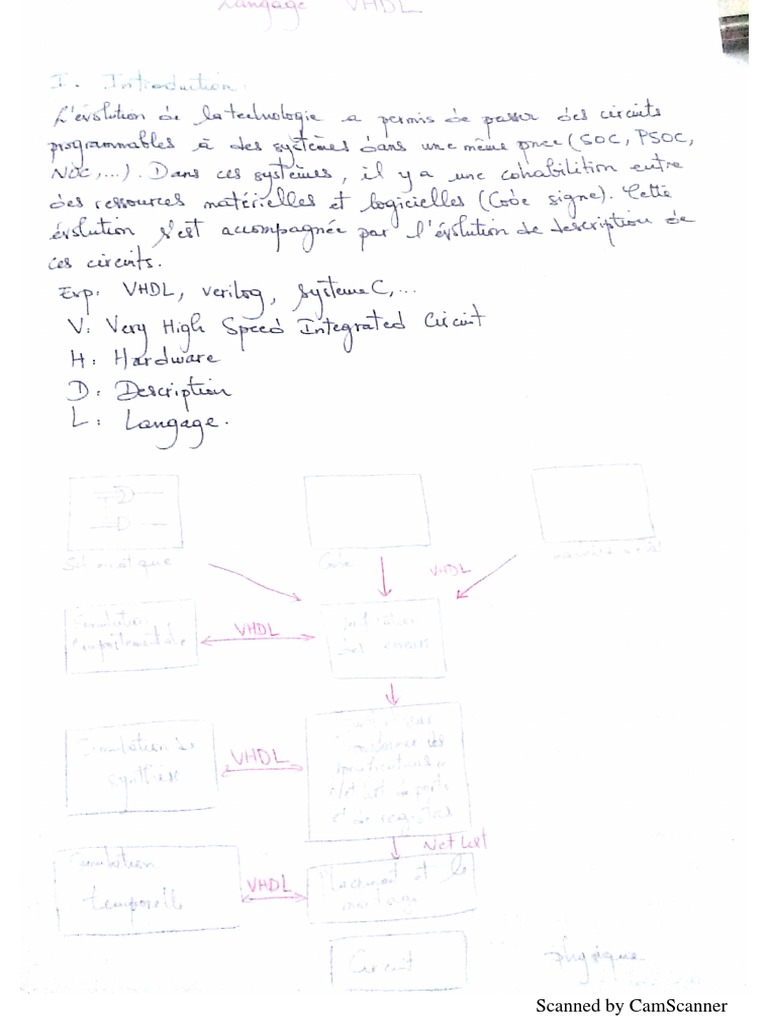 Langage VHDL
I. Introduction:
L'évolution de la technologie a permis de passer des circuits
programmables à des systèmes dans une même puce (SOC, PSOC,
NOC,...). Dans ces systèmes, il y a une cohabilition entre
des ressources matérielles et logicielles (Code signe). Cette
évolution s'est accompagnée par l'évolution de description de
ces circuits.
Exp: VHDL, verilog, systeme C,...
V: Very High Speed Integrated Circuit
H: Hardware
D: Description
L: Langage.
VHDL
Simulation
comportementale
VHDL
Simulation de
synthèse
VHDL
Net List
Simulation
temporelle
VHDL
Placement et le
routage
Circuit
physique
Scanned by CamScanner